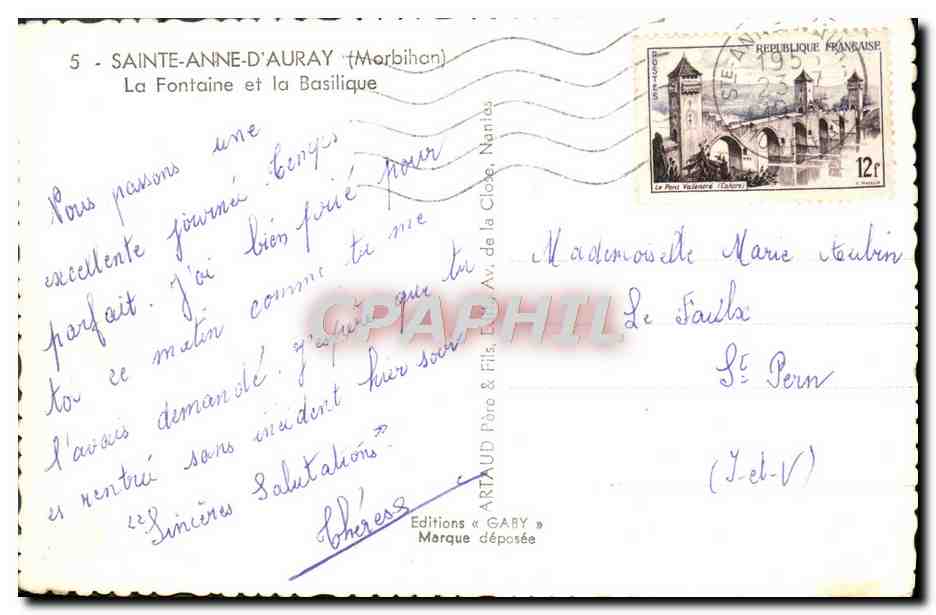 5 - SAINTE-ANNE-D'AURAY (Morbihan)
La Fontaine et la Basilique
Nous passons une
excellente journée. temps
parfait. J'ai bien prié pour
toi ce matin comme tu me
l'avais demandé. J'espère que tu
es rentrée sans incident hier soir
"Sincères Salutations"
Thérèse
ARTAUD Père & Fils, Edit., Av. de la Close, Nantes
Editions « GABY »
Marque déposée
REPUBLIQUE FRANÇAISE
POSTES
Le Pont Valentré (Cahors)
12f
STE-ANNE
Mademoiselle Marie Aubin
Le
St Pern
(I-et-V)
CPAPHIL